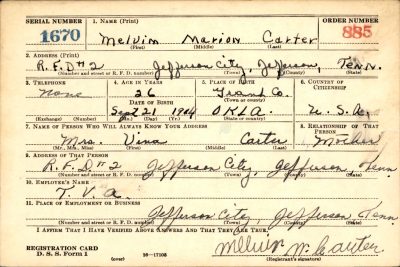 SERIAL NUMBER 1. NAME (Print) ORDER NUMBER
1670 Melvin Marion Carter 885
(First) (Middle) (Last)
2. ADDRESS (Print)
R.F.D #2 Jefferson City, Jefferson, Tenn.
(Number and street or R. F. D. number) (Town) (County) (State)
3. TELEPHONE 4. AGE IN YEARS 5. PLACE OF BIRTH 6. COUNTRY OF CITIZENSHIP
None 26 Grant Co.
DATE OF BIRTH (Town or county)
Sept 21 1914 OKLA. U.S.A.
(Exchange) (Number) (Mo.) (Day) (Yr.) (State or country)
7. NAME OF PERSON WHO WILL ALWAYS KNOW YOUR ADDRESS 8. RELATIONSHIP OF THAT PERSON
Mrs. Vina Carter Mother
(Mr., Mrs., Miss) (First) (Middle) (Last)
9. ADDRESS OF THAT PERSON
R.F.D #2 Jefferson City, Jefferson, Tenn.
(Number and street or R. F. D. number) (Town) (County) (State)
10. EMPLOYER'S NAME
T.V.A.
11. PLACE OF EMPLOYMENT OR BUSINESS
Jefferson City, Jefferson Tenn
(Number and street or R. F. D. number) (Town) (County) (State)
I AFFIRM THAT I HAVE VERIFIED ABOVE ANSWERS AND THAT THEY ARE TRUE.
REGISTRATION CARD Melvin M. Carter
D. S. S. Form 1 (over) 16—17105 (Registrant's signature)